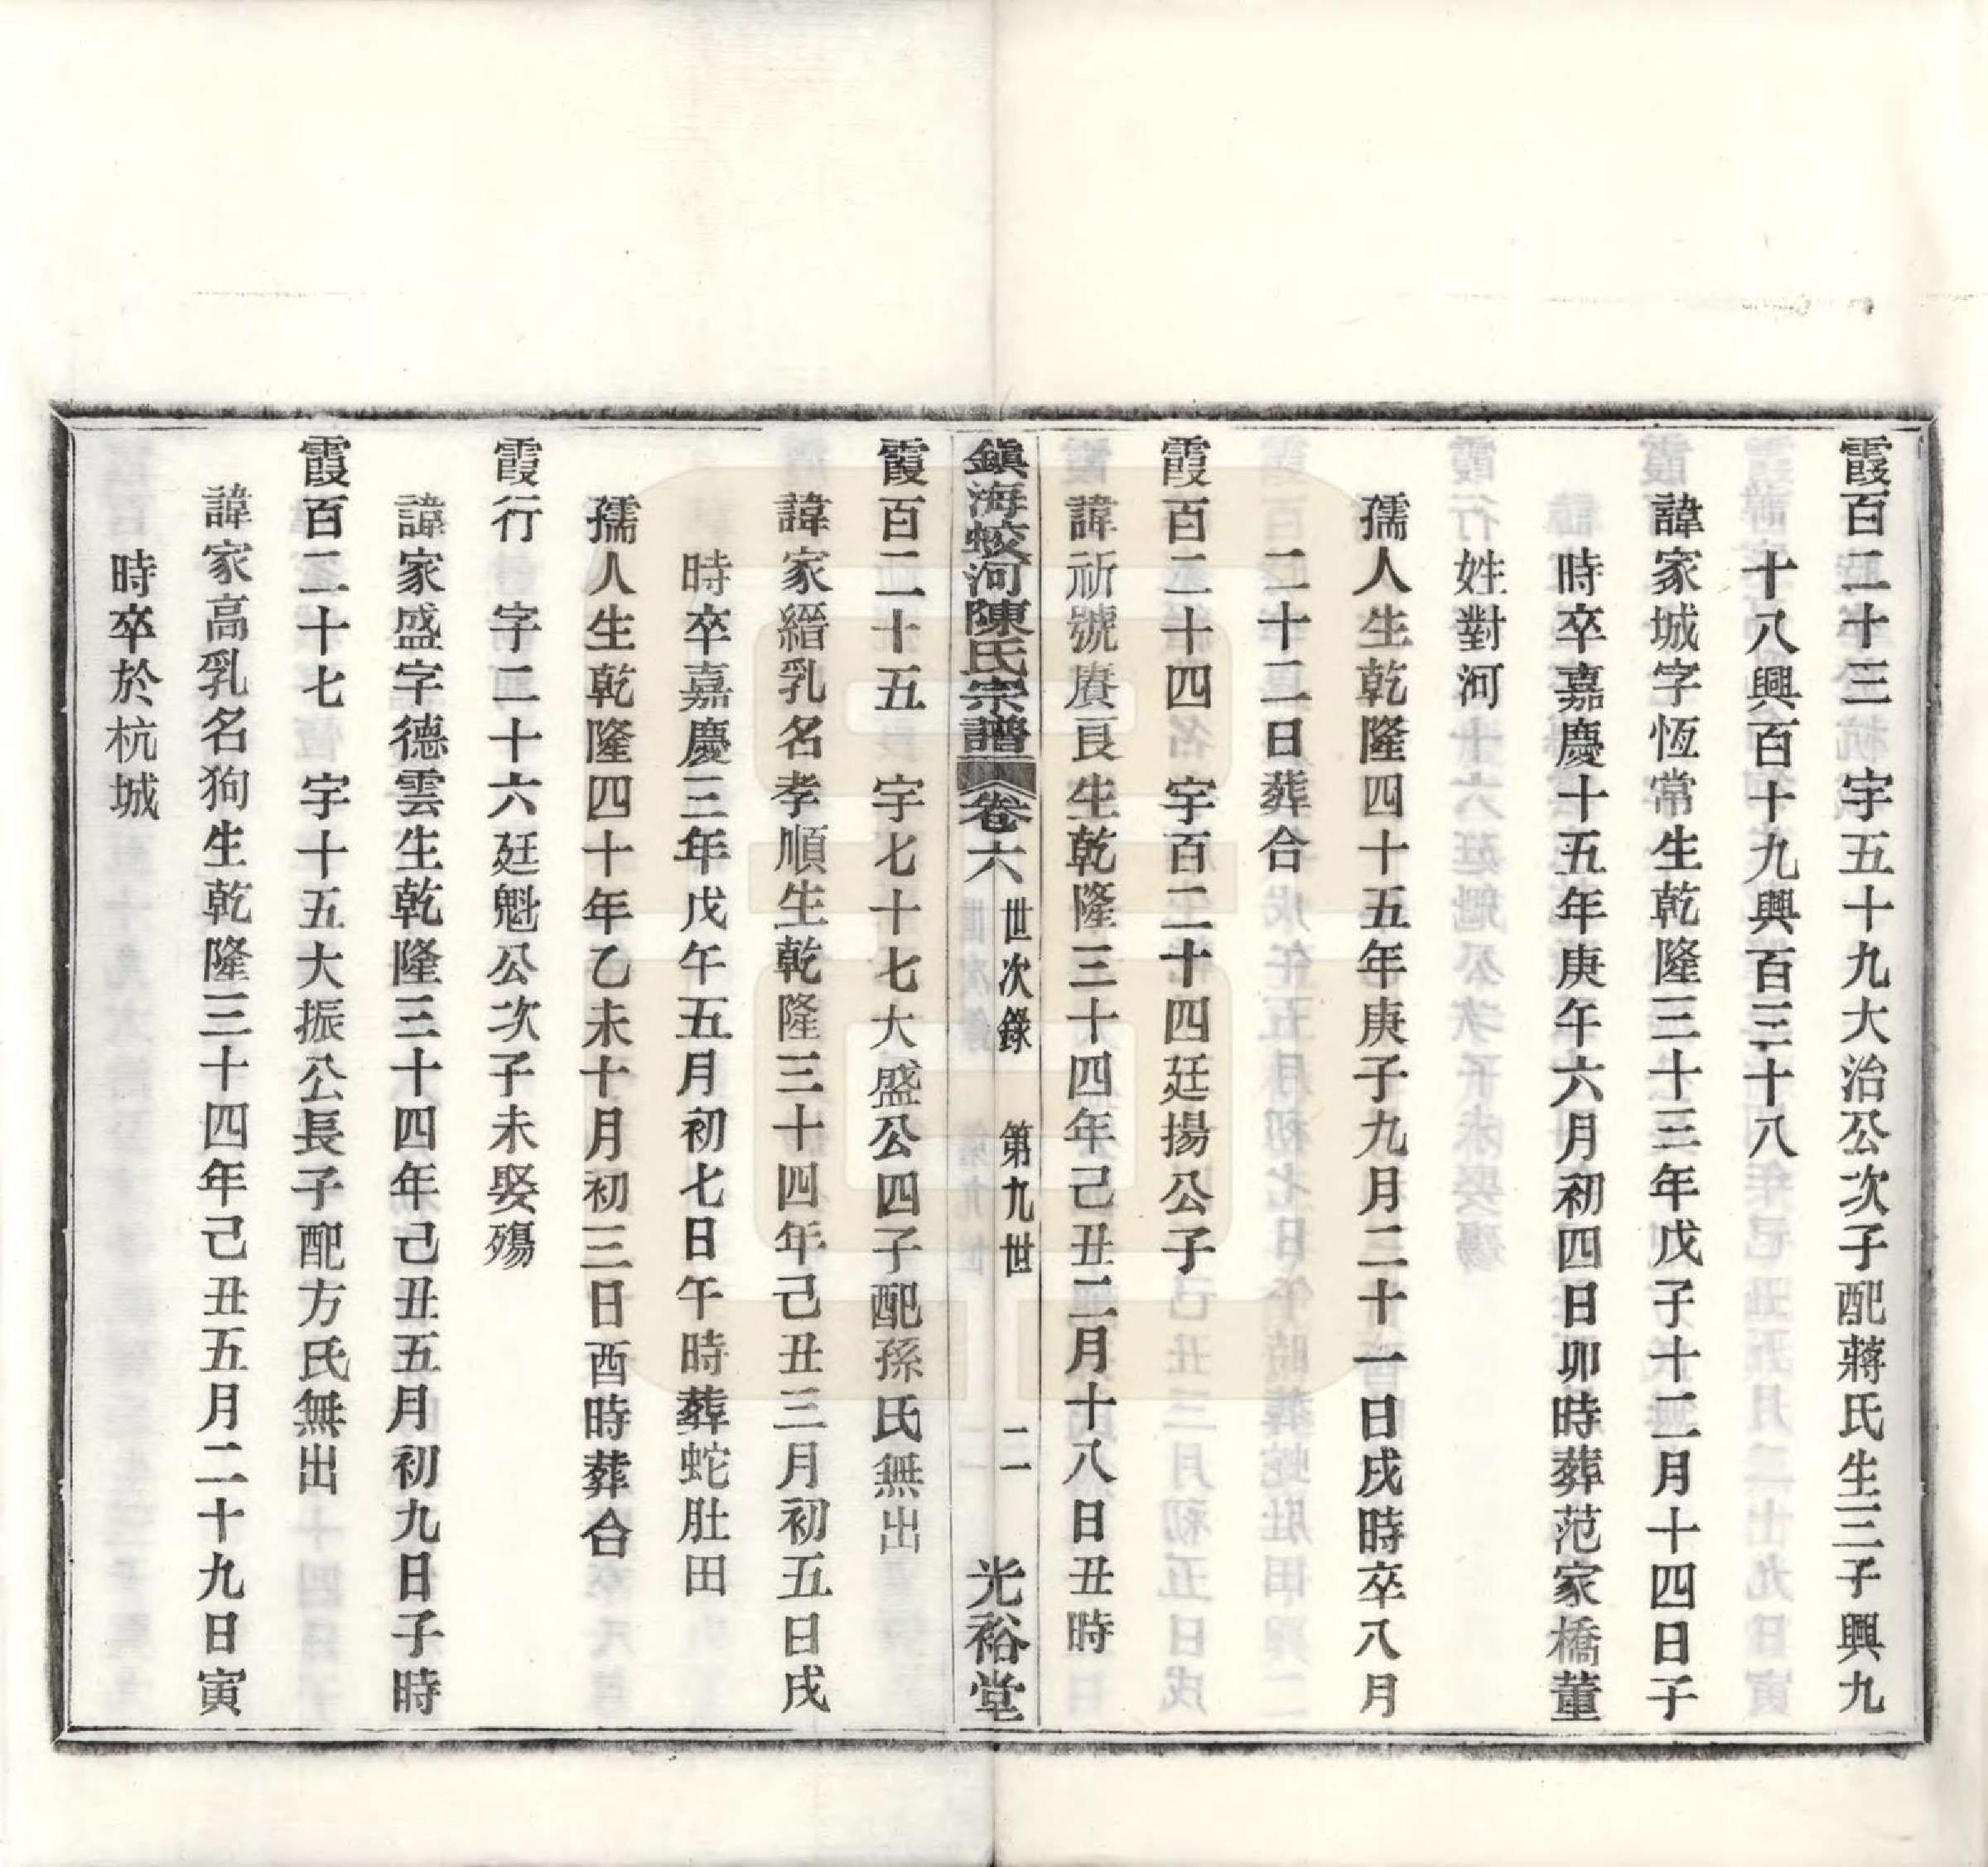 霞百二十三　宇五十九大治公次子配蔣氏生三子興九
十八興百十九興百三十八
諱家城字恆常生乾隆三十三年戊子十二月十四日子
時卒嘉慶十五年庚午六月初四日卯時葬范家橋董
姓對河
孺人生乾隆四十五年庚子九月二十一日戌時卒八月
二十二日葬合
霞百二十四　宇百二十四廷揚公子
諱祈號賡良生乾隆三十四年己丑二月十八日丑時
鎭海蛟河陳氏宗譜　卷六　世次錄　第九世　二　光裕堂
霞百二十五　宇七十七大盛公四子配孫氏無出
諱家縉乳名孝順生乾隆三十四年己丑三月初五日戌
時卒嘉慶三年戊午五月初七日午時葬蛇肚田
孺人生乾隆四十年乙未十月初三日酉時葬合
霞行　字二十六廷魁公次子未娶殤
諱家盛字德雲生乾隆三十四年己丑五月初九日子時
霞百二十七　宇十五大振公長子配方氏無出
諱家高乳名狗生乾隆三十四年己丑五月二十九日寅
時卒於杭城